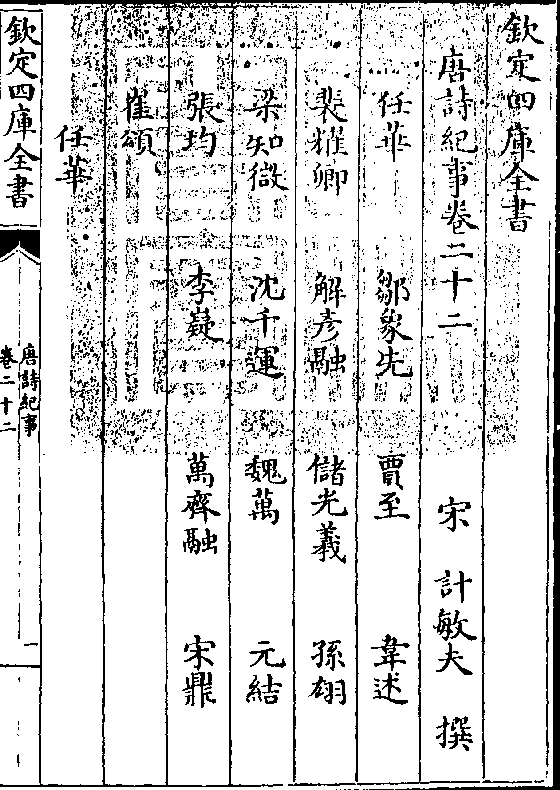 欽定四庫全書
唐詩紀事卷二十二
宋 計敏夫 撰
任華 鄒象先 賈至 韋述
裴耀卿 解彥融 儲光羲 孫翃
梁知微 沈千運 魏萬 元結
張均 李嶷 萬齊融 宋鼎
崔頌
任華
欽定四庫全書
唐詩紀事
卷二十二
一